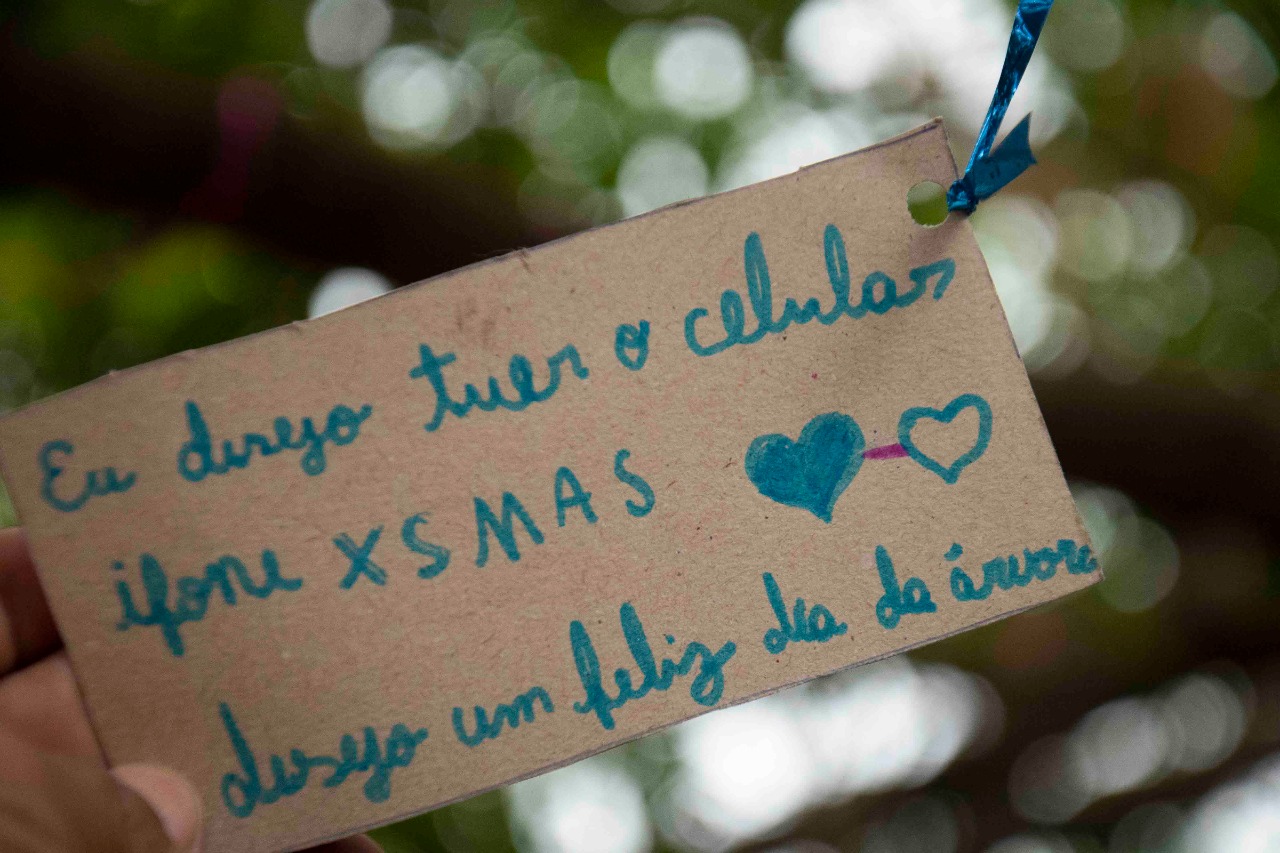 Eu desejo tuer o celular
ifone XS MAS
desejo um feliz dia da árvore